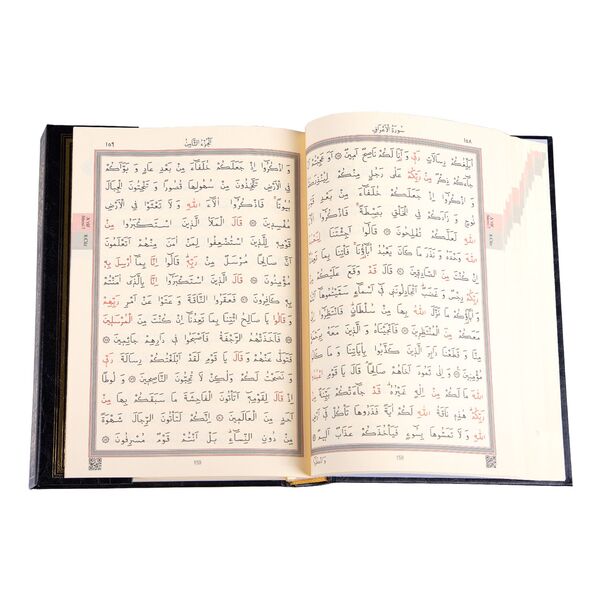 سُورَةُ الْاَعْرَافِ ١٥٨
اُبَلِّغُكُمْ رِسَالَاتِ رَبّٖي وَ اَنَا لَكُمْ نَاصِحٌ اَمٖينٌ ۞ اَوَ عَجِبْتُمْ اَنْ
جَٓاءَكُمْ ذِكْرٌ مِنْ رَبِّكُمْ عَلٰى رَجُلٍ مِنْكُمْ لِيُنْذِرَكُمْ
وَ اذْكُرُٓوا اِذْ جَعَلَكُمْ خُلَفَٓاءَ مِنْ بَعْدِ قَوْمِ
نُوحٍ وَ زَادَكُمْ فِي الْخَلْقِ بَصْۜطَةً ۚ فَاذْكُرُٓوا اٰلَٓاءَ
اللّٰهِ لَعَلَّكُمْ تُفْلِحُونَ ۞ قَالُٓوا اَجِئْتَنَا لِنَعْبُدَ
اللّٰهَ وَحْدَهُ وَ نَذَرَ مَا كَانَ يَعْبُدُ اٰبَٓاؤُنَا ۚ فَاْتِنَا بِمَا تَعِدُنَٓا
اِنْ كُنْتَ مِنَ الصَّادِقٖينَ ۞ قَالَ قَدْ وَقَعَ عَلَيْكُمْ مِنْ
رَبِّكُمْ رِجْسٌ وَ غَضَبٌ ۜ اَتُجَادِلُونَنٖي فٖٓي اَسْمَٓاءٍ سَمَّيْتُمُوهَٓا اَنْتُمْ
وَ اٰبَٓاؤُكُمْ مَا نَزَّلَ اللّٰهُ بِهَا مِنْ سُلْطَانٍ ۜ فَانْتَظِرُٓوا اِنّٖي
مَعَكُمْ مِنَ الْمُنْتَظِرٖينَ ۞ فَاَنْجَيْنَاهُ وَ الَّذٖينَ مَعَهُ بِرَحْمَةٍ
مِنَّا وَ قَطَعْنَا دَابِرَ الَّذٖينَ كَذَّبُوا بِاٰيَاتِنَا وَ مَا كَانُوا
مُؤْمِنٖينَ ۞ وَ اِلٰى ثَمُودَ اَخَاهُمْ صَالِحًا ۢ قَالَ يَا قَوْمِ اعْبُدُوا
اللّٰهَ مَا لَكُمْ مِنْ اِلٰهٍ غَيْرُهُ ۜ قَدْ جَٓاءَتْكُمْ بَيِّنَةٌ مِنْ
رَبِّكُمْ ۜ هٰذِهٖ نَاقَةُ اللّٰهِ لَكُمْ اٰيَةً فَذَرُوهَا تَاْكُلْ فٖٓي اَرْضِ
اللّٰهِ وَ لَا تَمَسُّوهَا بِسُٓوءٍ فَيَاْخُذَكُمْ عَذَابٌ اَلٖيمٌ ۞
158
اَلْجُزْءُ الثَّامِنُ ١٥٩
وَ اذْكُرُٓوا اِذْ جَعَلَكُمْ خُلَفَٓاءَ مِنْ بَعْدِ عَادٍ وَ بَوَّاَكُمْ
فِي الْاَرْضِ تَتَّخِذُونَ مِنْ سُهُولِهَا قُصُورًا وَ تَنْحِتُونَ الْجِبَالَ
بُيُوتًا ۚ فَاذْكُرُٓوا اٰلَٓاءَ اللّٰهِ وَ لَا تَعْثَوْا فِي الْاَرْضِ
مُفْسِدٖينَ ۞ قَالَ الْمَلَاُ الَّذٖينَ اسْتَكْبَرُوا مِنْ
قَوْمِهٖ لِلَّذٖينَ اسْتُضْعِفُوا لِمَنْ اٰمَنَ مِنْهُمْ اَتَعْلَمُونَ
اَنَّ صَالِحًا مُرْسَلٌ مِنْ رَبِّهٖ ۜ قَالُٓوا اِنَّا بِمَٓا اُرْسِلَ بِهٖ
مُؤْمِنُونَ ۞ قَالَ الَّذٖينَ اسْتَكْبَرُٓوا اِنَّا بِالَّذٖٓي اٰمَنْتُمْ
بِهٖ كَافِرُونَ ۞ فَعَقَرُوا النَّاقَةَ وَ عَتَوْا عَنْ اَمْرِ رَبِّهِمْ
وَ قَالُوا يَا صَالِحُ ائْتِنَا بِمَا تَعِدُنَٓا اِنْ كُنْتَ مِنَ الْمُرْسَلٖينَ
۞ فَاَخَذَتْهُمُ الرَّجْفَةُ فَاَصْبَحُوا فٖي دَارِهِمْ جَاثِمٖينَ ۞
فَتَوَلّٰى عَنْهُمْ وَ قَالَ يَا قَوْمِ لَقَدْ اَبْلَغْتُكُمْ رِسَالَةَ رَبّٖي
وَ نَصَحْتُ لَكُمْ وَلٰكِنْ لَا تُحِبُّونَ النَّاصِحٖينَ ۞ وَ لُوطًا
اِذْ قَالَ لِقَوْمِهٖٓ اَتَاْتُونَ الْفَاحِشَةَ مَا سَبَقَكُمْ بِهَا مِنْ
اَحَدٍ مِنَ الْعَالَمٖينَ ۞ اِنَّكُمْ لَتَاْتُونَ الرِّجَالَ شَهْوَةً
مِنْ دُونِ النِّسَٓاءِ ۜ بَلْ اَنْتُمْ قَوْمٌ مُسْرِفُونَ ۞
159